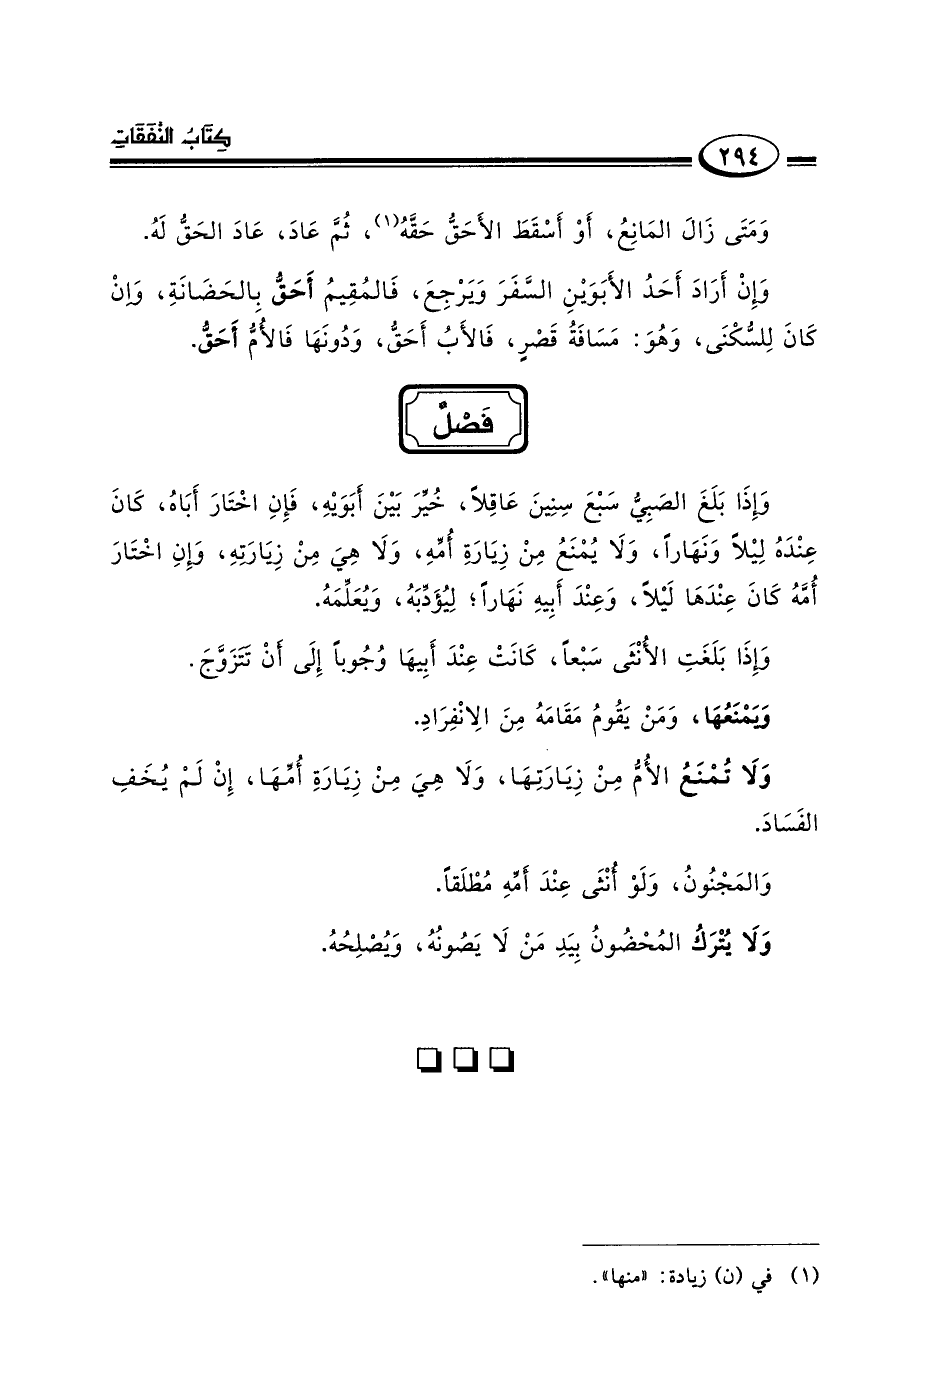 كِتَابُ النَّفَقَاتِ
٢٩٤
وَمَتَى زَالَ المَانِعُ، أَوْ أَسْقَطَ الأَحَقُّ حَقَّهُ(١)، ثُمَّ عَادَ، عَادَ الحَقُّ لَهُ.
وَإِنْ أَرَادَ أَحَدُ الأَبَوَيْنِ السَّفَرَ وَيَرْجِعَ، فَالمُقِيمُ أَحَقُّ بِالحَضَانَةِ، وَإِنْ
كَانَ لِلسُّكْنَى، وَهُوَ: مَسَافَةُ قَصْرٍ، فَالأَبُ أَحَقُّ، وَدُونَهَا فَالأُمُّ أَحَقُّ.
فَصْلٌ
وَإِذَا بَلَغَ الصَبِيُّ سَبْعَ سِنِينَ عَاقِلاً، خُيِّرَ بَيْنَ أَبَوَيْهِ، فَإِنِ اخْتَارَ أَبَاهُ، كَانَ
عِنْدَهُ لَيْلاً وَنَهَاراً، وَلَا يُمْنَعُ مِنْ زِيَارَةِ أُمِّهِ، وَلَا هِيَ مِنْ زِيَارَتِهِ، وَإِنِ اخْتَارَ
أُمَّهُ كَانَ عِنْدَهَا لَيْلاً، وَعِنْدَ أَبِيهِ نَهَاراً؛ لِيُؤَدِّبَهُ، وَيُعَلِّمَهُ.
وَإِذَا بَلَغَتِ الأُنْثَى سَبْعاً، كَانَتْ عِنْدَ أَبِيهَا وُجُوباً إِلَى أَنْ تَتَزَوَّجَ.
وَيَمْنَعُهَا، وَمَنْ يَقُومُ مَقَامَهُ مِنَ الِانْفِرَادِ.
وَلَا تُمْنَعُ الأُمُّ مِنْ زِيَارَتِهَا، وَلَا هِيَ مِنْ زِيَارَةِ أُمِّهَا، إِنْ لَمْ يُخَفِ
الفَسَادَ.
وَالمَجْنُونُ، وَلَوْ أُنْثَى عِنْدَ أُمِّهِ مُطْلَقاً.
وَلَا يُتْرَكُ المُحْضُونُ بِيَدِ مَنْ لَا يَصُونُهُ، وَيُصْلِحُهُ.
(١) في (ن) زيادة: «منها».